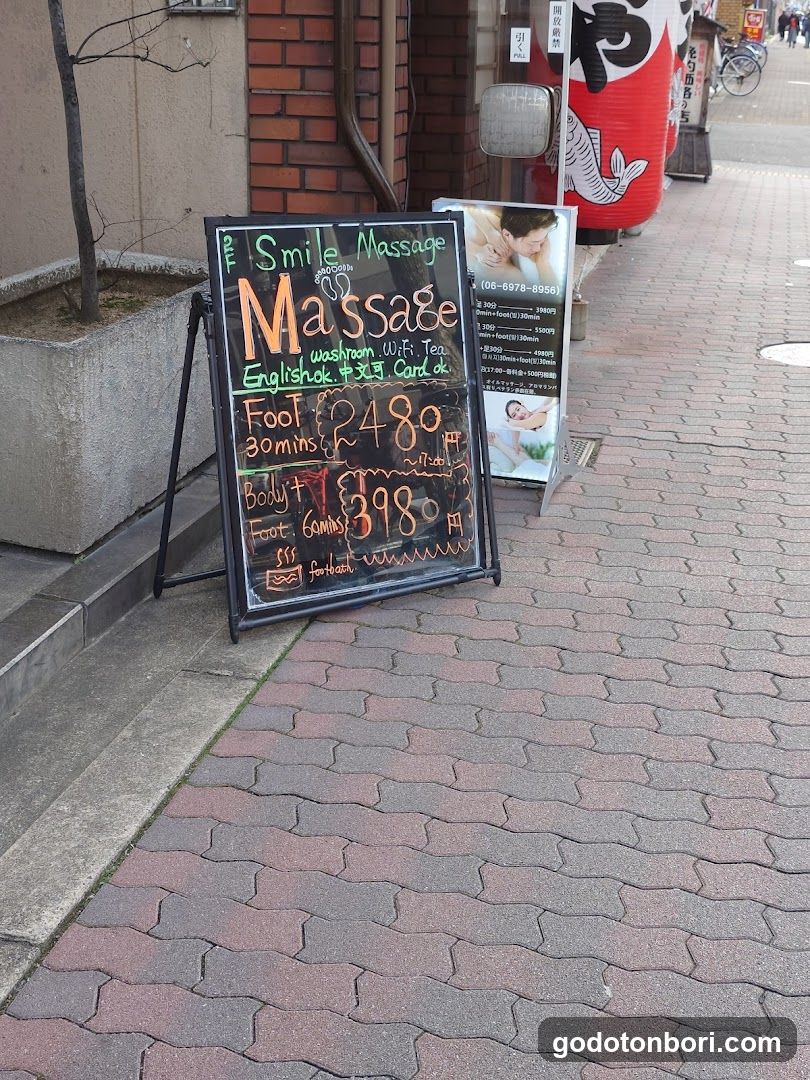 開放厳禁
引く
PULL
や
2F Smile Massage
Massage
washroom. WiFi. Tea
English ok. 中文可. Card ok.
Foot 2480円
30mins ~17:00
Body + 3980円
Foot. 60mins
footbath
(06-6978-8956)
足 30分 3980円
30min+foot(발)30min
30分 5500円
min+foot(발)30min
+足30分 4980円
(마사지)30min+foot(발)30min
godotonbori.com